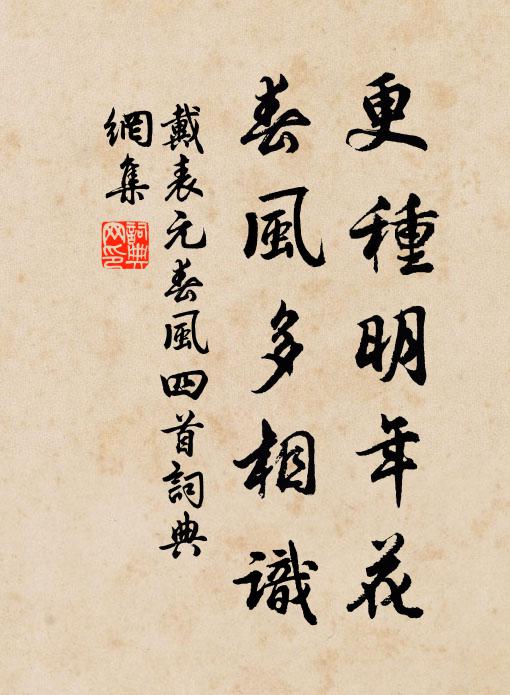 更種明年花
春風多相識
戴表元春風四首詞典
網集
詞典網印